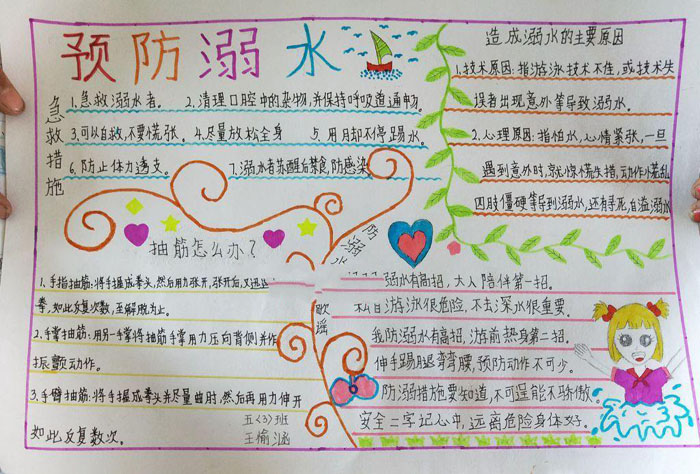 预防溺水
急救措施
1.急救溺水者。 2.清理口腔中的杂物,并保持呼吸道通畅。
3.可以自救,不要慌张、4.尽量放松全身 5.用月却不停踢水。
6.防止体力透支。 7.溺水者苏醒后禁食,防感染
造成溺水的主要原因
1.技术原因:指游泳技术不佳,或技术失
误者出现意外等导致溺水。
2.心理原因:指怕水,心情紧张,一旦
遇到意外时,就惊慌失措,动作慌乱
四肢僵硬等导到溺水,还有寻死,自溢溺水
抽筋怎么办?
1.手指抽筋:将手握成拳头,然后用力张开,张开后,又迅速
拳,如此反复次数,至解脱为止。
2.手掌抽筋:用另一手掌将抽筋手掌用力压向背侧并作
振颤动作。
3.手臂抽筋:将手握成拳头并尽量曲肘,然后再用力伸开
如此反复数次。
五(3)班
王榆涵
防溺水
歌谣
溺水有高招,大人陪伴第一招。
游泳很危险,不去深水很重要。
我防溺水有高招,游前热身第二招。
伸手踢腿弯弯腰,预防动作不可少。
防溺措施要知道,不可逞能不骄傲。
安全二字记心中,远离危险身体好。